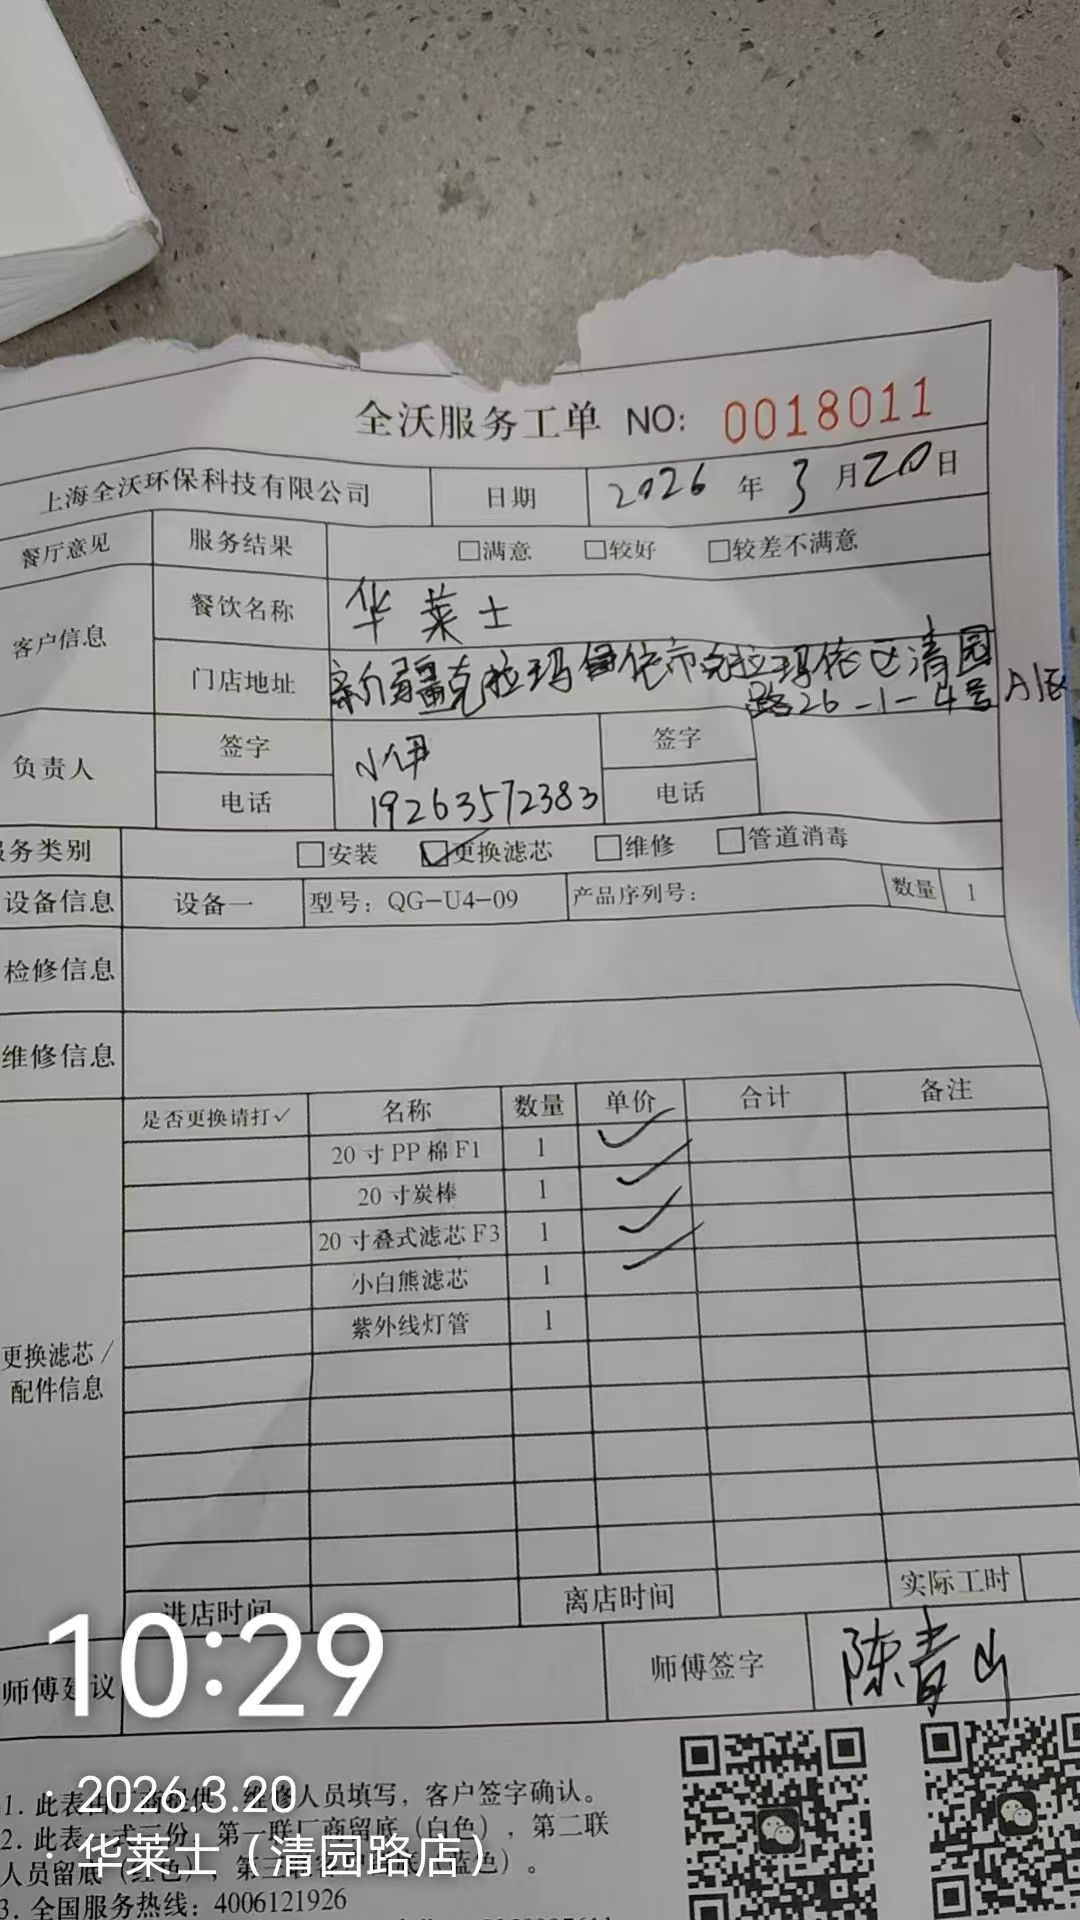 全沃服务工单 NO: 0018011
上海全沃环保科技有限公司 日期 2026 年 3 月 20 日
餐厅意见 服务结果 □满意 □较好 □较差不满意
客户信息 餐饮名称 华莱士
门店地址 新疆克拉玛依市克拉玛依区清园
路26-1-4号A1区
负责人 签字 小伊 签字
电话 19263572383 电话
服务类别 □安装 ☑更换滤芯 □维修 □管道消毒
设备信息 设备一 型号：QG-U4-09 产品序列号： 数量 1
检修信息
维修信息
是否更换请打✓ 名称 数量 单价 合计 备注
20寸PP棉F1 1 ✓
20寸炭棒 1 ✓
20寸叠式滤芯F3 1 ✓
小白熊滤芯 1 ✓
紫外线灯管 1
更换滤芯/
配件信息
进店时间 离店时间 实际工时
师傅建议 师傅签字 陈青山
10:29
· 2026.3.20
· 华莱士（清园路店）
1. 此表由厂商提供，维修人员填写，客户签字确认。
2. 此表一式三份，第一联厂商留底（白色），第二联
人员留底（红色），第三联 （蓝色）。
3. 全国服务热线：4006121926